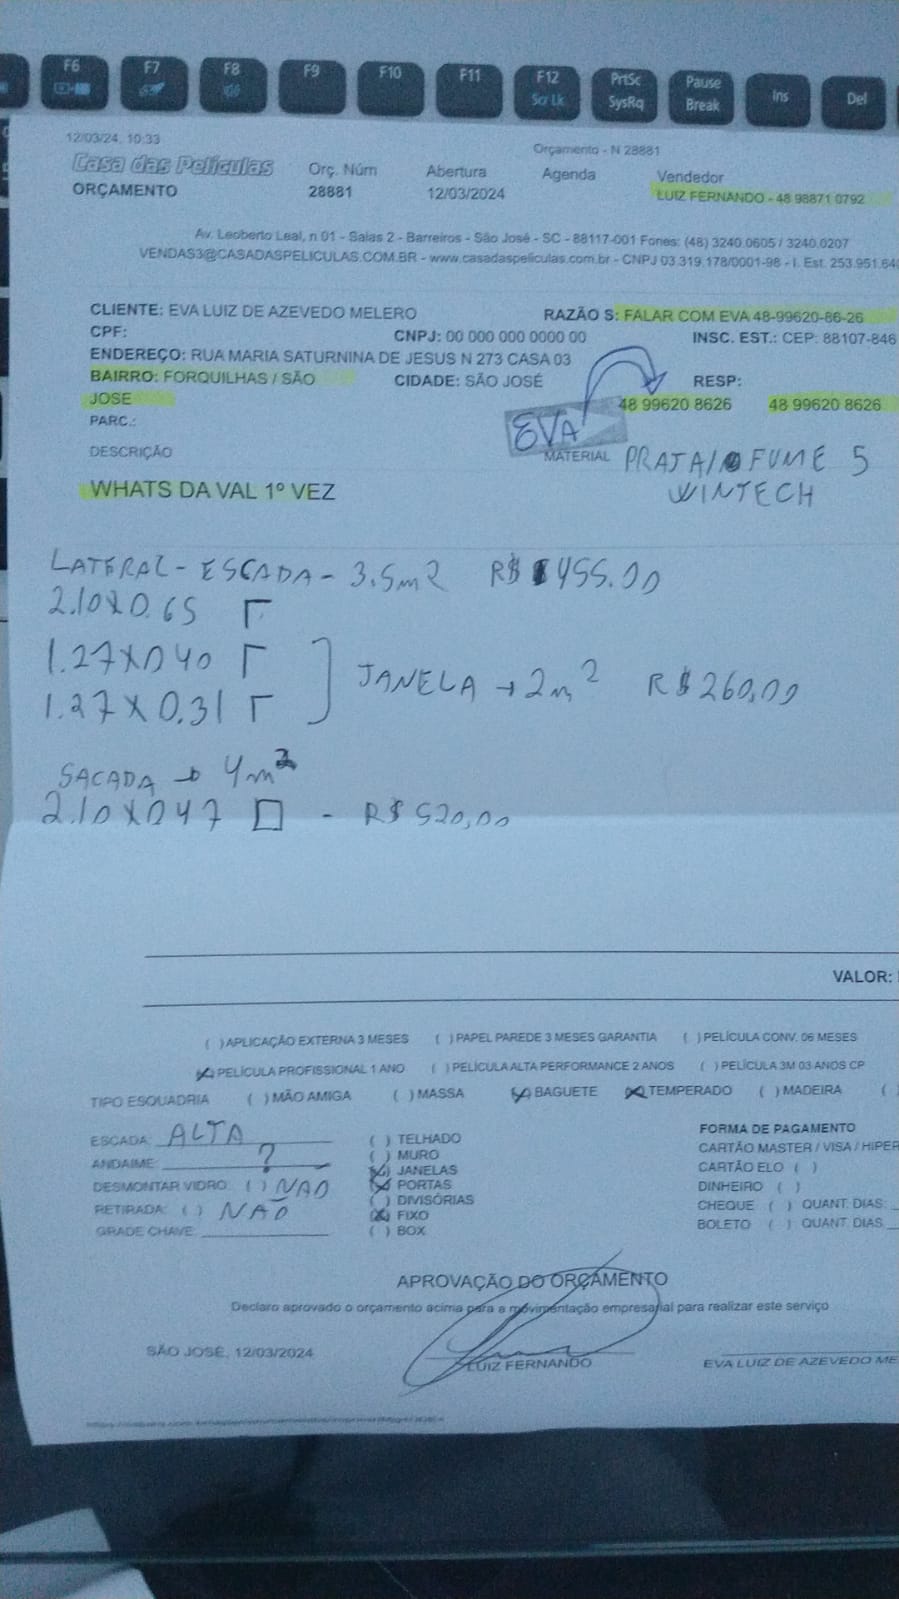 F6 F7 F8 F9 F10 F11 F12 PrtSc Pause Ins Del
Scr Lk SysRq Break
12/03/24, 10:33 Orçamento - N 28881
Casa das Películas Orç. Núm Abertura Agenda Vendedor
ORÇAMENTO 28881 12/03/2024 LUIZ FERNANDO - 48 98871 0792
Av. Leoberto Leal, n 01 - Salas 2 - Barreiros - São José - SC - 88117-001 Fones: (48) 3240.0605 / 3240.0207
VENDAS3@CASADASPELICULAS.COM.BR - www.casadaspeliculas.com.br - CNPJ 03.319.178/0001-98 - I. Est. 253.951.640
CLIENTE: EVA LUIZ DE AZEVEDO MELERO RAZÃO S: FALAR COM EVA 48-99620-86-26
CPF: CNPJ: 00 000 000 0000 00 INSC. EST.: CEP: 88107-846
ENDEREÇO: RUA MARIA SATURNINA DE JESUS N 273 CASA 03
BAIRRO: FORQUILHAS / SÃO CIDADE: SÃO JOSÉ RESP:
JOSE 48 99620 8626 48 99620 8626
PARC.: EVA
DESCRIÇÃO MATERIAL PRATA/ FUME 5
WINTECH
WHATS DA VAL 1º VEZ
LATERAL - ESCADA - 3.5m2 R$ 455.00
2.10X0.65
1.27X040 JANELA → 2m2 R$260,00
1.27X0.31
SACADA → 4m2
2.10X047 - R$ 520,00
VALOR:
( )APLICAÇÃO EXTERNA 3 MESES ( )PAPEL PAREDE 3 MESES GARANTIA ( )PELÍCULA CONV. 06 MESES
(X)PELÍCULA PROFISSIONAL 1 ANO ( )PELÍCULA ALTA PERFORMANCE 2 ANOS ( )PELÍCULA 3M 03 ANOS CP
TIPO ESQUADRIA ( )MÃO AMIGA ( )MASSA (X)BAGUETE (X)TEMPERADO ( )MADEIRA (
ESCADA: ALTA ( ) TELHADO FORMA DE PAGAMENTO
ANDAIME: ? ( ) MURO CARTÃO MASTER / VISA / HIPER
DESMONTAR VIDRO: ( ) NÃO (X) JANELAS CARTÃO ELO ( )
RETIRADA: ( ) NÃO (X) PORTAS DINHEIRO ( )
GRADE CHAVE: ( ) DIVISÓRIAS CHEQUE ( ) QUANT. DIAS:
(X) FIXO BOLETO ( ) QUANT. DIAS
( ) BOX
APROVAÇÃO DO ORÇAMENTO
Declaro aprovado o orçamento acima para a movimentação empresarial para realizar este serviço
SÃO JOSÉ, 12/03/2024 LUIZ FERNANDO EVA LUIZ DE AZEVEDO ME